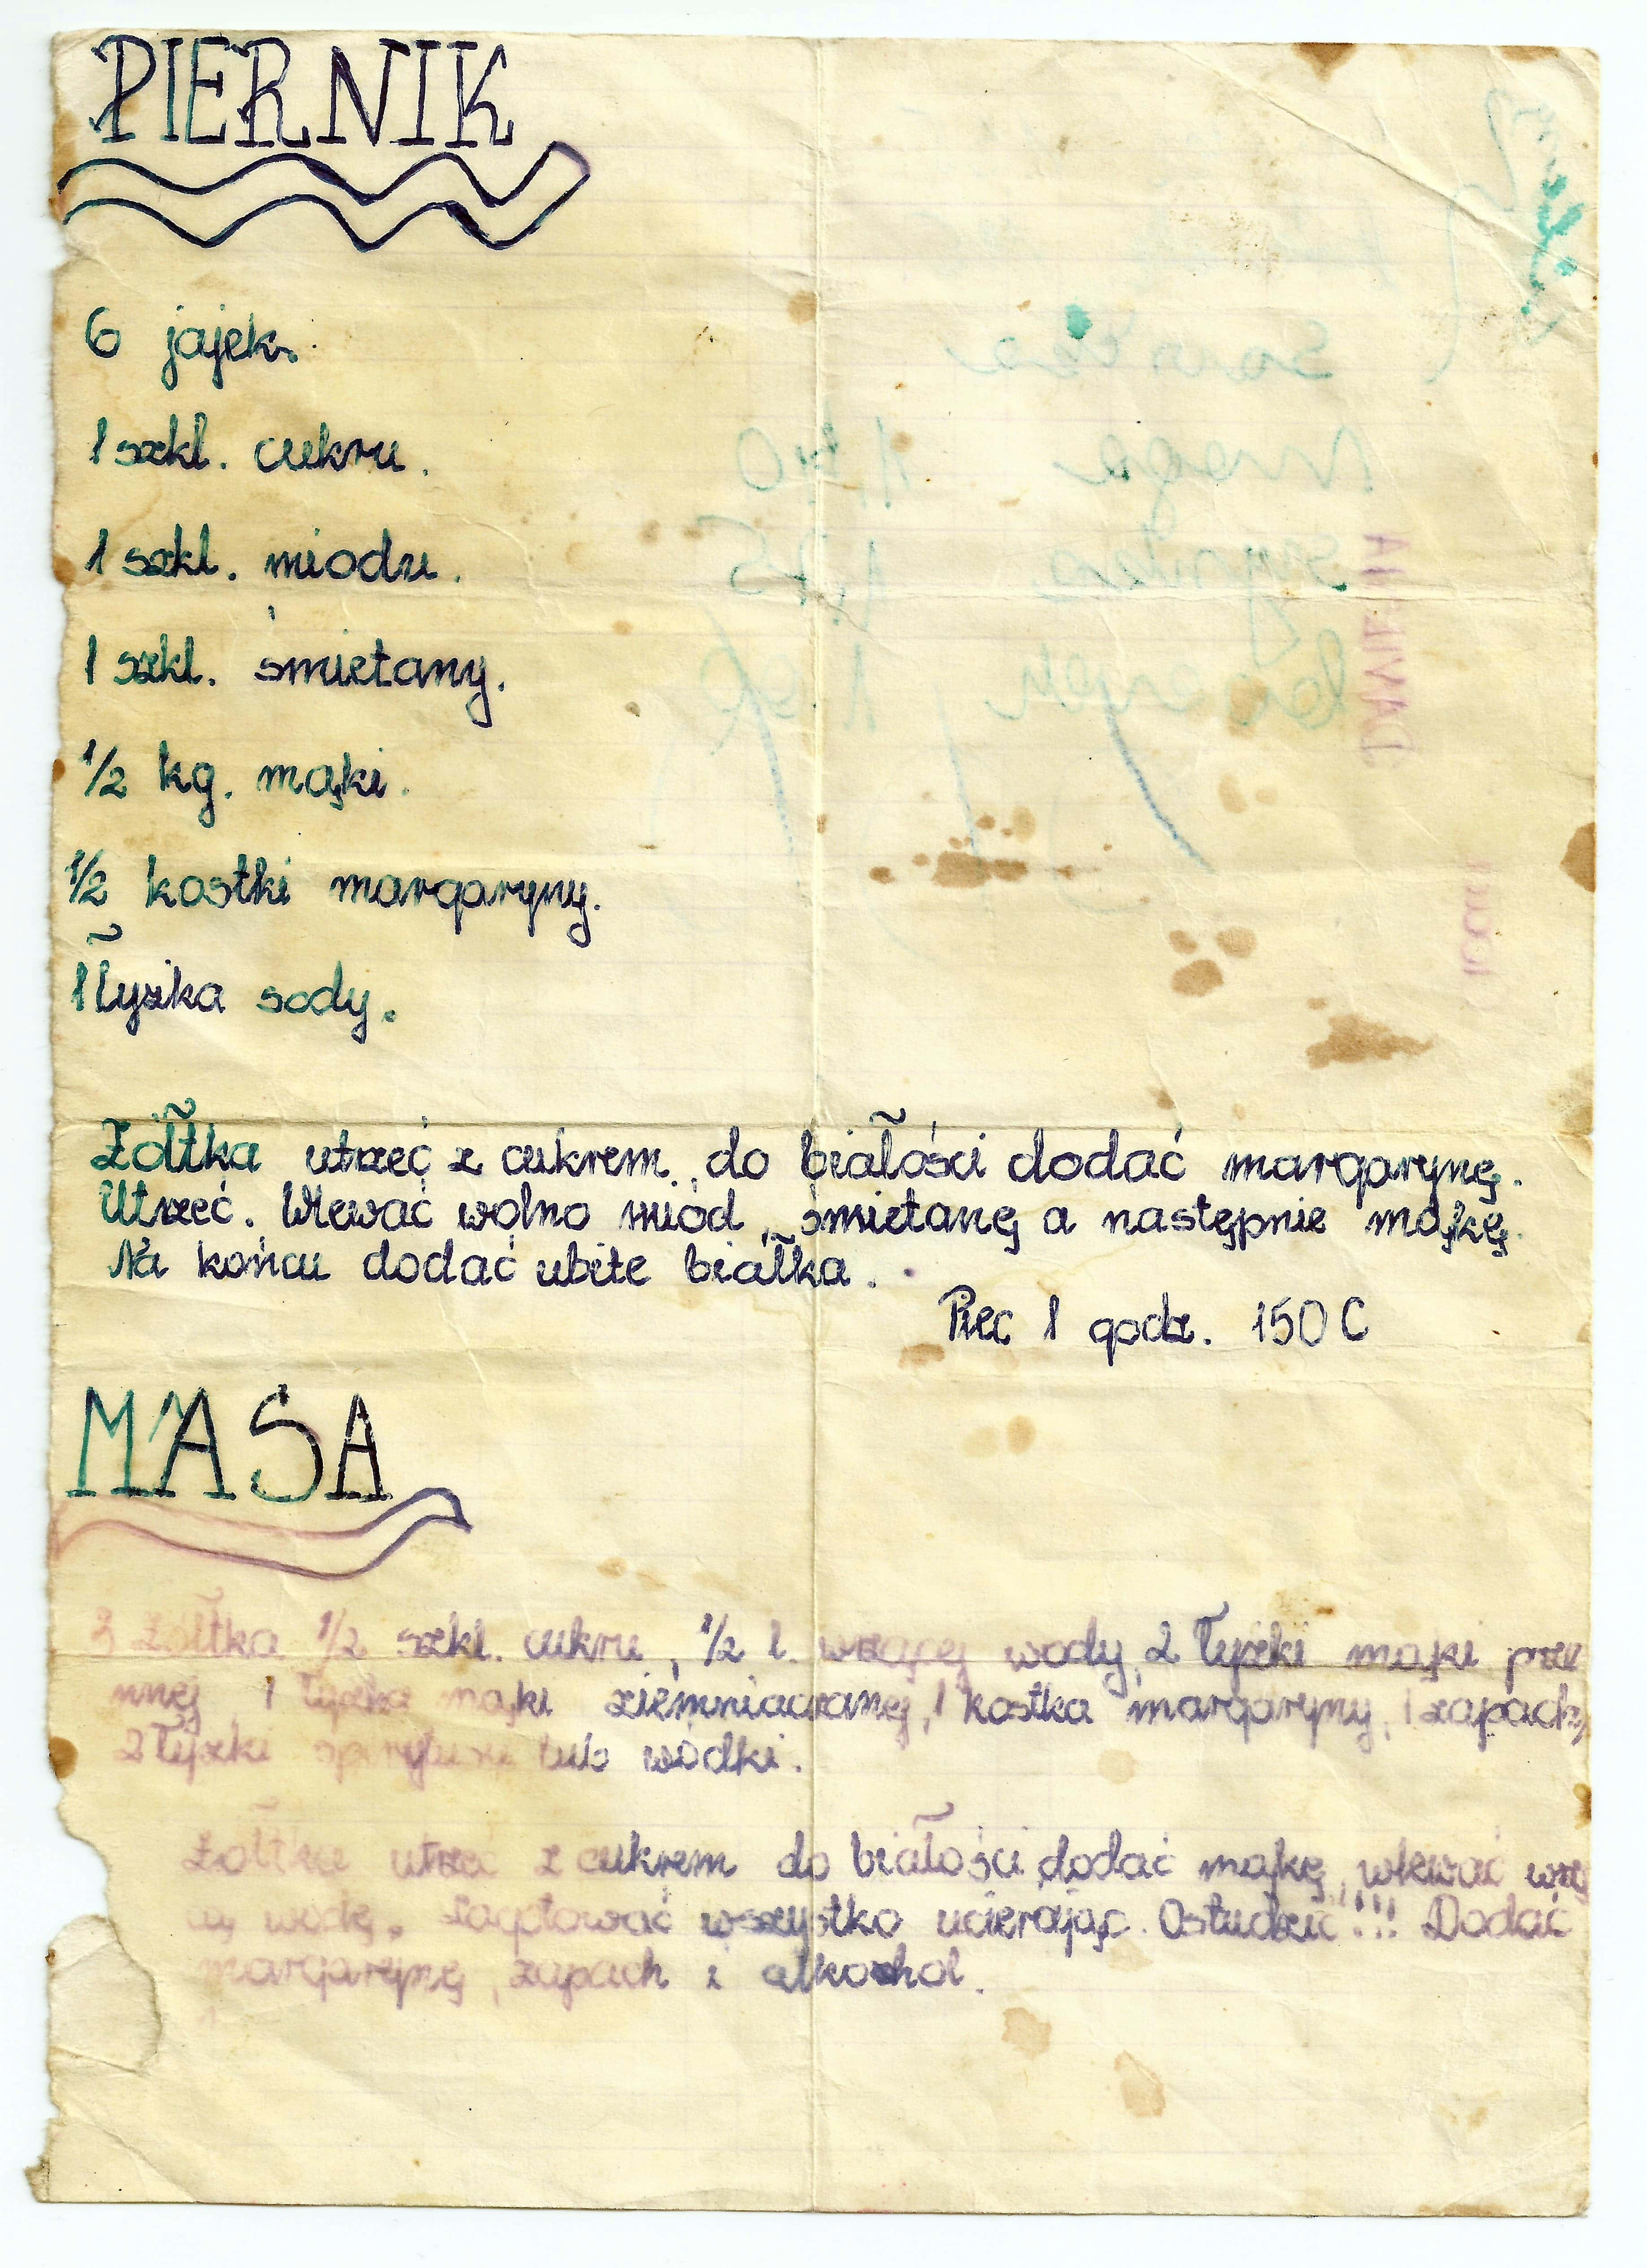 PIERNIK
6 jajek.
1 szkl. cukru.
1 szkl. miodu.
1 szkl. śmietany.
1/2 kg. mąki.
1/2 kostki margaryny.
1 łyżka sody.
Żółtka utrzeć z cukrem, do białości dodać margarynę.
Utrzeć. Wlewać wolno miód, śmietanę a następnie mąkę.
Na końcu dodać ubite białka.
Piec 1 godz. 150 C
MASA
3 żółtka 1/2 szkl. cukru, 1/2 l. wrzącej wody, 2 łyżki mąki psze
nnej 1 łyżka mąki ziemniaczanej, 1 kostka margaryny, 1 zapach,
2 łyżki spirytusu lub wódki.
Żółtka utrzeć z cukrem do białości dodać mąkę, wlewać wrzą
cą wodę. Zagotować wszystko ucierając. Ostudzić!!! Dodać
margarynę, zapach i alkohol.